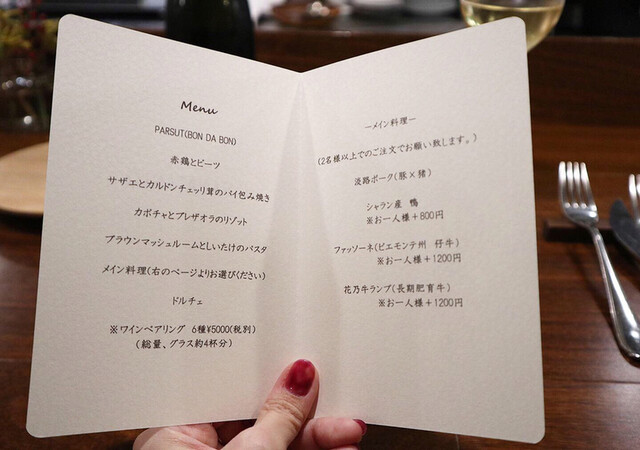 Menu
PARSUT(BON DA BON)
赤鶏とビーツ
サザエとカルドンチェッリ茸のパイ包み焼き
カボチャとブレザオラのリゾット
ブラウンマッシュルームとしいたけのパスタ
メイン料理(右のページよりお選びください)
ドルチェ
※ワインペアリング 6種¥5000(税別)
(総量、グラス約4杯分)
—メイン料理—
(2名様以上でのご注文でお願い致します。)
淡路ポーク(豚×猪)
シャラン産 鴨
※お一人様+800円
ファッソーネ(ピエモンテ州 仔牛)
※お一人様+1200円
花乃牛ランプ(長期肥育牛)
※お一人様+1200円